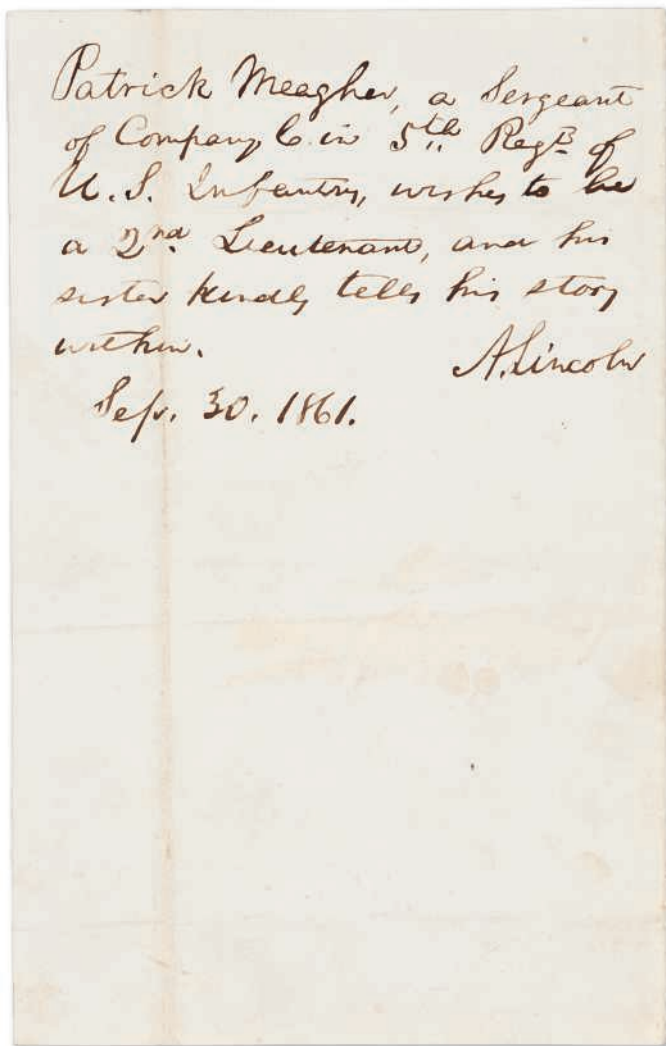 Patrick Meagher, a Sergeant
of Company C. in 5th Regt. of
U.S. Infantry, wishes to be
a 2nd. Lieutenant, and his
sister kindly tells his story
within.
A. Lincoln
Sep. 30. 1861.